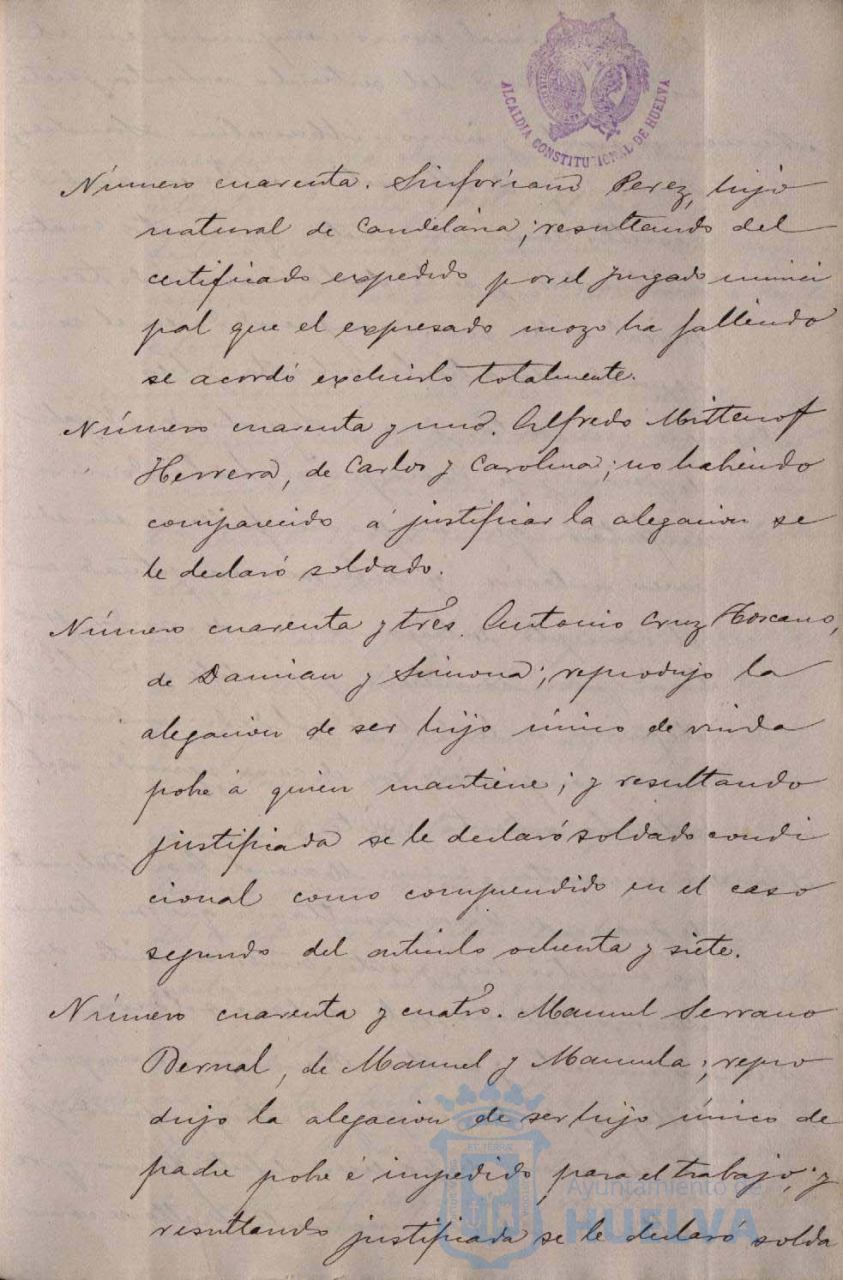 ALCALDIA CONSTITUCIONAL DE HUELVA
Número cuarenta. Sinforiano Perez, hijo
natural de Candelaria; resultando del
certificado expedido por el Juzgado munici
pal que el expresado mozo ha fallecido
se acordó excluirlo totalmente.
Número cuarenta y uno. Alfredo Mittenof
Herrera, de Carlos y Carolina; no habiendo
comparecido á justificar la alegacion se
le declaró soldado.
Número cuarenta y tres. Antonio Cruz Toscano,
de Damian y Simona; reprodujo la
alegacion de ser hijo único de viuda
pobre á quien mantiene; y resultando
justificada se le declaró soldado condi
cional como comprendido en el caso
segundo del artículo ochenta y siete.
Número cuarenta y cuatro. Manuel Serrano
Bernal, de Manuel y Manuela; repro
dujo la alegacion de ser hijo único de
padre pobre é impedido para el trabajo; y
resultando justificada se le declaró solda
Ayuntamiento de
HUELVA